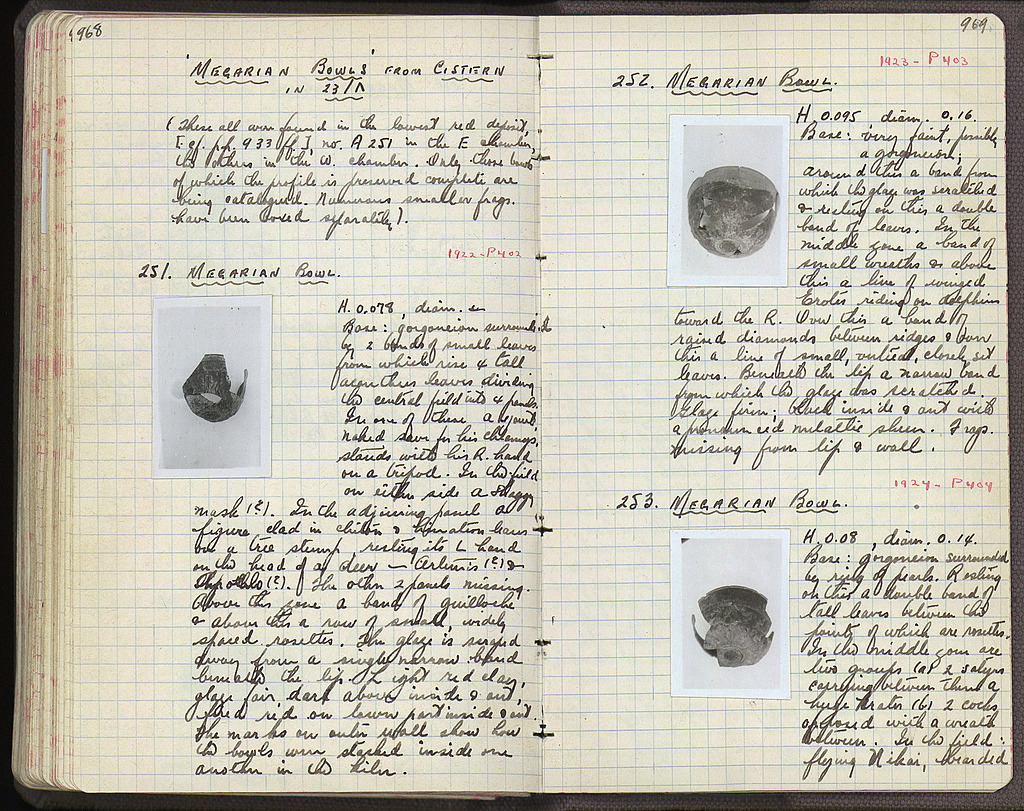 968
'MEGARIAN BOWLS' FROM CISTERN
IN 23/Λ
(These all were found in the lowest red deposit,
[cf. pp. 933 ff.], no. A 251 in the E chamber,
the others in the W. chamber. Only those bowls
of which the profile is preserved complete are
being catalogued. Numerous smaller frags.
have been boxed separately).
1922-P402
251. MEGARIAN BOWL.
H. 0.078, diam.
Base: gorgoneion surrounded
by 2 bands of small leaves
from which rise 4 tall
acanthus leaves dividing
the central field into 4 panels.
In one of these a
naked save for his chlamys,
stands with his R. hand
on a tripod. In the field
on either side a shaggy
mask(?). In the adjoining panel a
figure clad in chiton & himation leans
on a tree stump, resting its L hand
on the head of a deer – Artemis(?) &
Apollo(?). The other 2 panels missing.
Above this zone a band of guilloche
& above this a row of small, widely
spaced rosettes. The glaze is scraped
away from a single narrow band
beneath the lip. Light red clay,
glaze fair, dark above inside & out
fired red on lower part inside & out.
The marks on outer wall show how
the bowls were stacked inside one
another in the kiln.
969
1923-P403
252. MEGARIAN BOWL.
H. 0.095, diam. 0.16.
Base: very faint, possibly
a gorgoneion;
around this a band from
which the glaze was scratched
& resting on this a double
band of leaves. In the
middle zone a band of
small wreaths & above
this a line of winged
Erotes riding on dolphins
toward the R. Over this a band of
raised diamonds between ridges & over
this a line of small, vertical, closely set
leaves. Beneath the lip a narrow band
from which the glaze was scratched.
Glaze firm; black inside & out with
a pronounced metallic sheen. Frags.
missing from lip & wall.
1924-P404
253. MEGARIAN BOWL.
H. 0.08, diam. 0.14.
Base: gorgoneion surrounded
by ring of pearls. Resting
on this a double band of
tall leaves between the
points of which are rosettes.
In the middle zone are
two groups (a) 2 satyrs
carrying between them a
huge krater (b) 2 cocks
opposed with a wreath
between. In the field:
flying Nikai, bearded